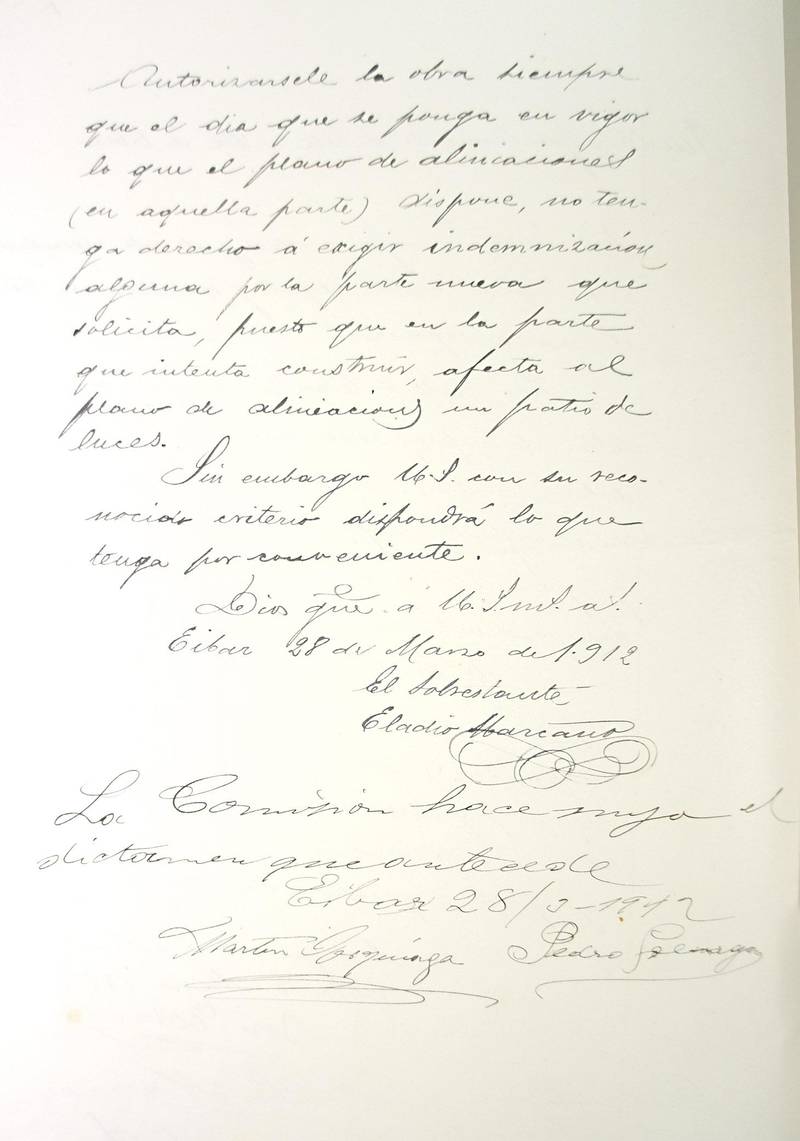 Autorizarsele la obra siempre
que el dia que se ponga en vigor
lo que el plano de alineaciones
(en aquella parte) dispone, no ten-
ga derecho á exigir indemnización
alguna por la parte nueva que
solicita, puesto que en la parte
que intenta construir, afecta al
plano de alineaciones un patio de
luces.
Sin embargo U.S. con su reco-
nocido criterio dispondrá lo que
tenga por conveniente.
Dios gue. á U.S. m.s. a.s.
Eibar 28 de Marzo de 1.912
El Sobrestante
Eladio Marcano
La Comisión hace suyo el
dictamen que antecede
Eibar 28/3-1912
Martin
Pedro